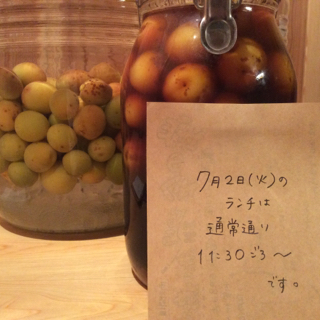 7月2日(火)の
ランチは
通常通り
11:30ごろ〜
です。